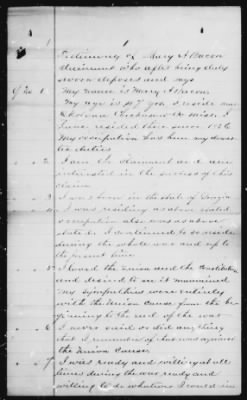 1
Testimony of Mary A Bacon
claimant who after being duly
sworn deposes and says
My name is Mary A Bacon
My age is 47 yrs I reside near
I
have resided here since 1826
My occupation has been my domes
tic duties
2 I am the claimant and am
interested in the success of this
claim
3 I was born in the state of
4 I was residing as above stated
occupation also was as above
stated. I continued to so reside
during the whole war and up to
the present time
5 I loved the Union and the Constitution
and desired to see it maintained
My sympathies were entirely
with the Union Cause from the be
ginning to the end of the war
6 I never said or did any thing
that I remember of that was against
the Union Cause
7 I was ready and willing at all
times during the war ready and
willing to do whatever I could in